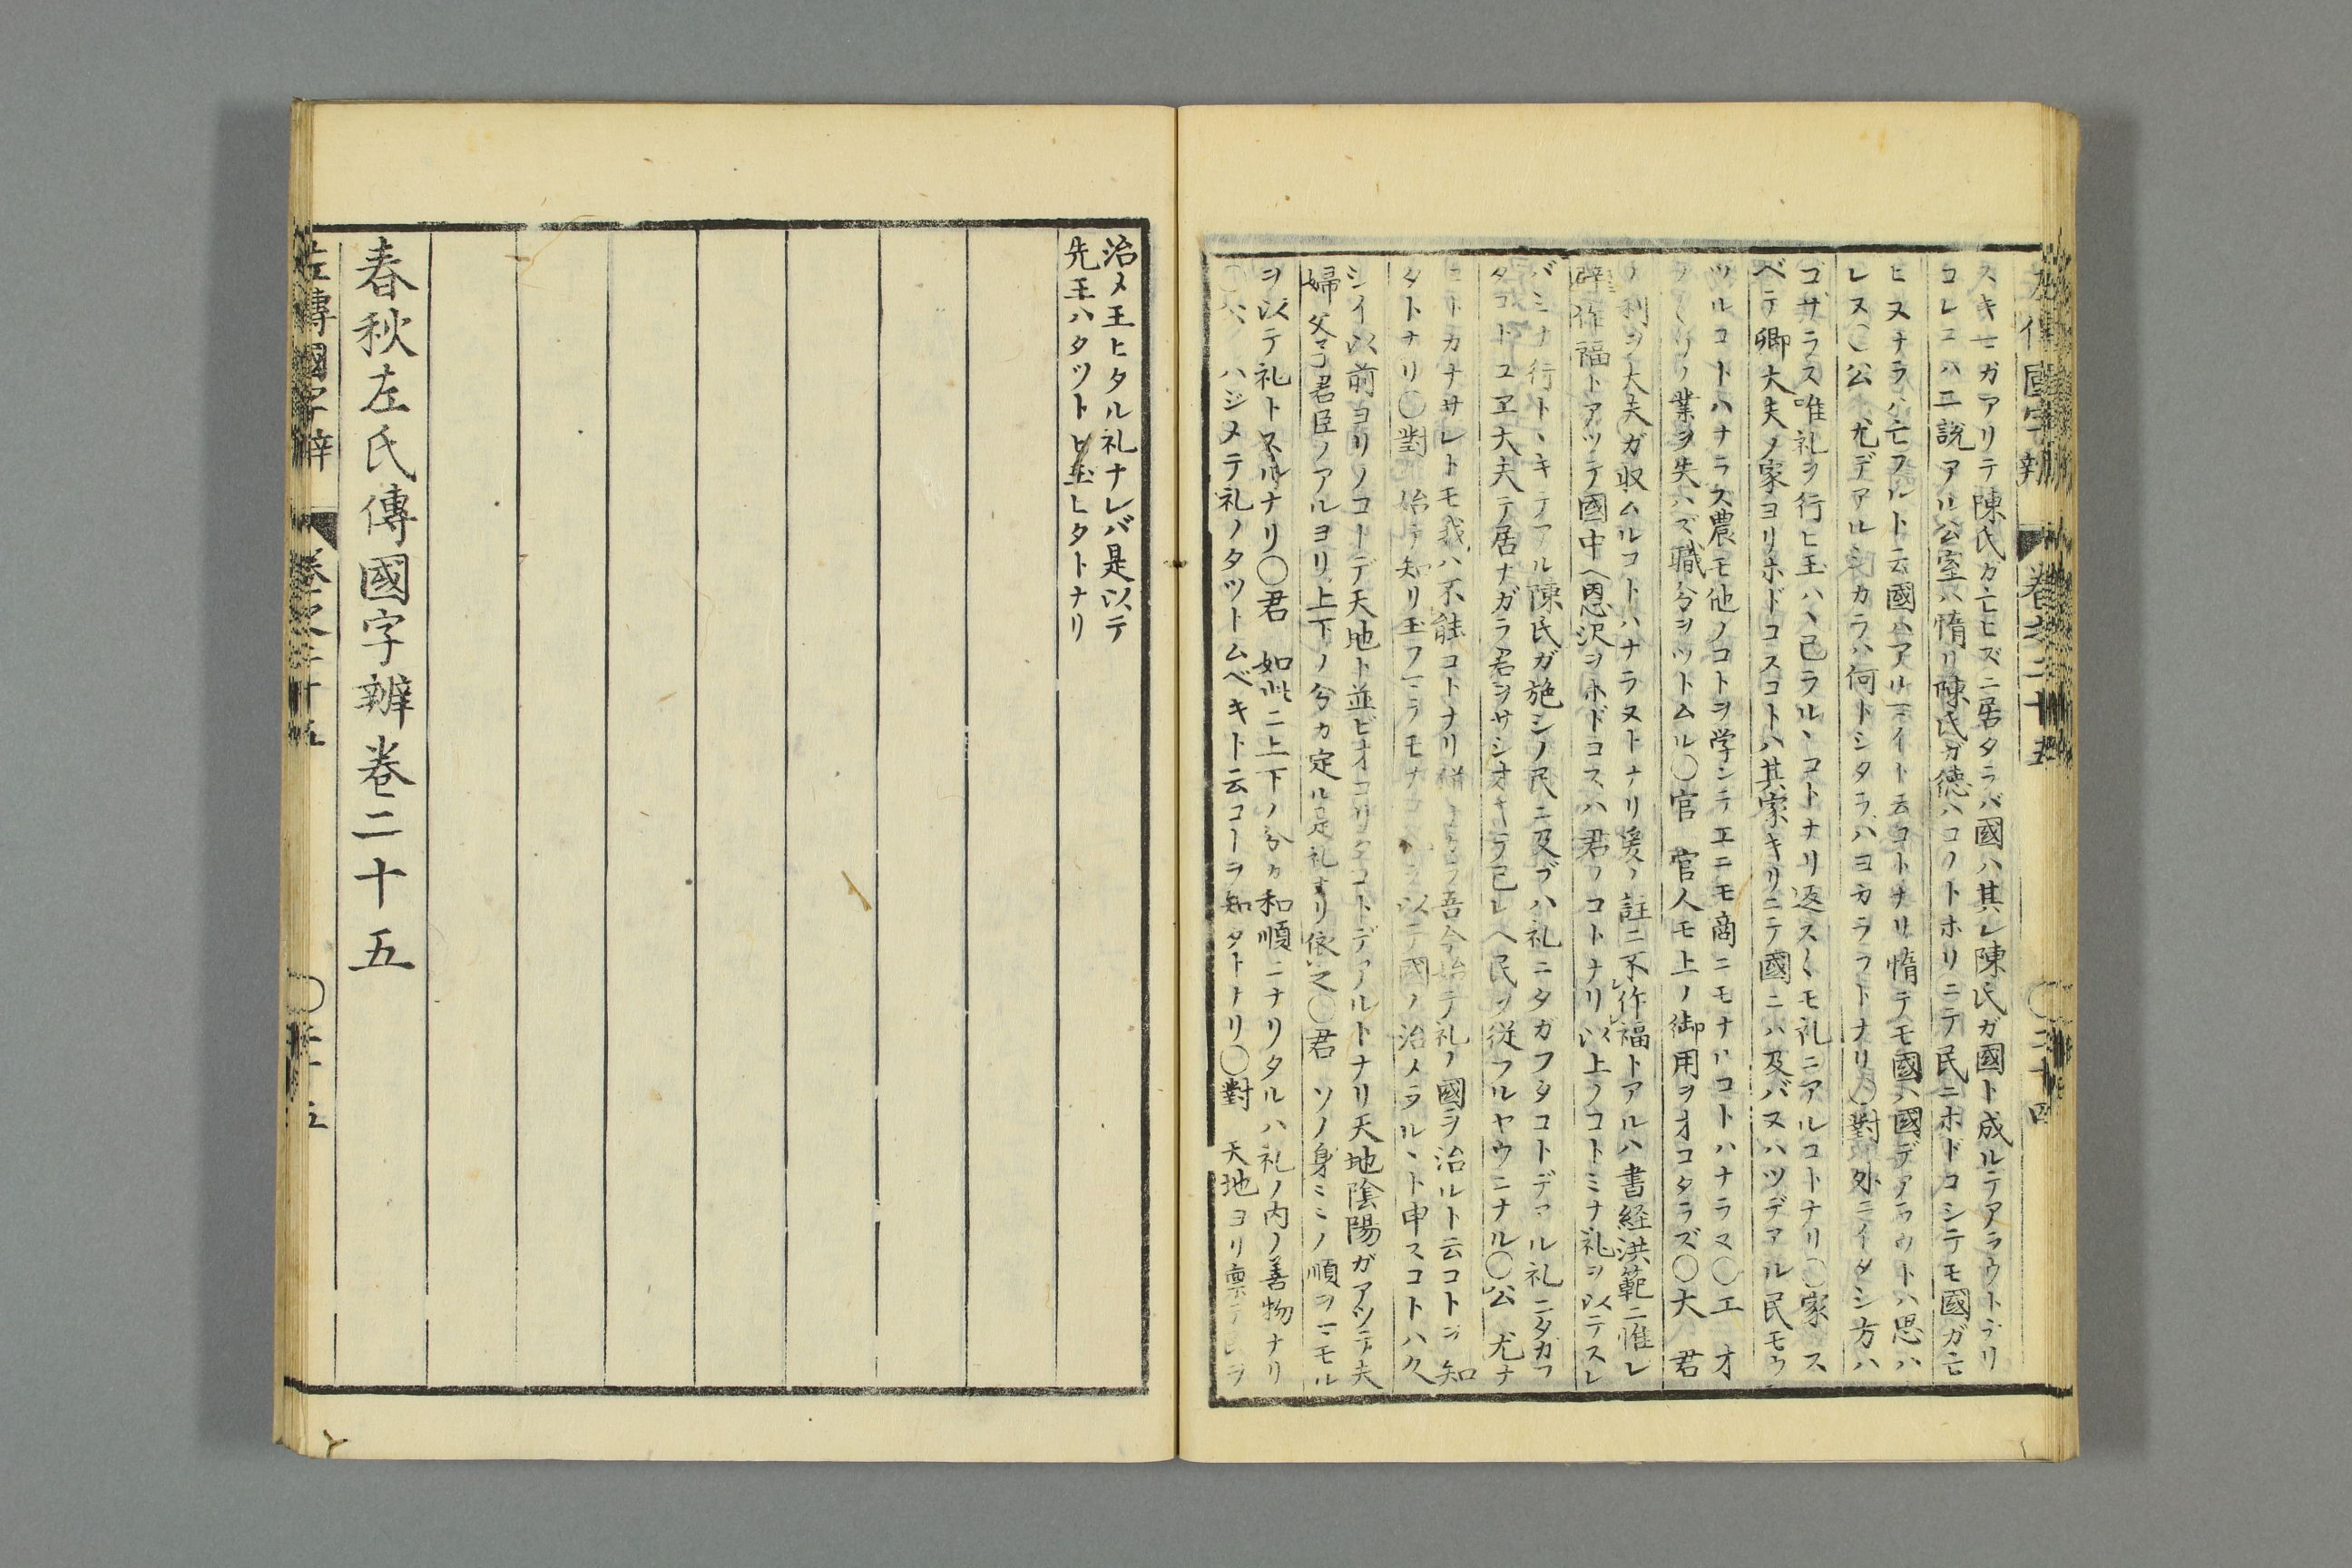 左傳國字辨 卷之二十五 〇三十四
スキ ガアリテ陳氏ガ亡ヒズニ居タラバ國ハ其レ陳氏ガ國ト成ルテアラウトナリ
コレニハ二説アル公室ハ惰リ陳氏ガ徳ハコノトホリニテ民ニホドコシテモ國ガ亡
ヒヌナラハ亡フルト云國ハアルマイト云コトナリ惰テモ國ハ國デアラウトハ思ハ
レヌ〇公 尤デアルシカラハ何トシタラバヨカララトナリ〇對 外ニイタシ方ハ
ゴザラス唯礼ヲ行ヒ玉ハヽ已ラルヽコトナリ返ス〱モ礼ニアルコトナリ〇家 ス
ベテ卿大夫ノ家ヨリホドコスコトハ其家キリニテ國ニハ及バヌハツデアル民モウ
ツルコトハナラス農モ他ノコトヲ学シテエニモ商ニモナルコトハナラマ〇工 オ
ノ〱ノ業ヲ失ハズ職分ヲツトムル〇官 官人モ上ノ御用ヲオコタラズ〇大 君
ノ利ヲ大夫ガ収ムルコトハナラヌトナリ爰ノ註ニ不作福トアルハ書経洪範ニ惟レ
辟作福トアツテ國中ヘ恩沢ヲホドコスハ君ノコトナリ以上ノコトミナ礼ヲ以テスレ
バミナ行トヽキテアル陳氏ガ施シノ民ニ及ブハ礼ニタガフタコトデアル礼ニタガフ
タコトユヱ大夫テ居ナガラ君ヲサシオキテ己レヘ民ヲ従フルヤウニナル〇公 尤ナ
コトカナサレトモ我ハ不能コトナリ 吾今始テ礼ノ國ヲ治ルト云コトヲ知
タトナリ〇對 始テ知リ玉フ 以テ國ノ治メラルヽト申スコトハ久
シイ以前ヨリノコトデ天地ト並ビオコリタコトデアルトナリ天地陰陽ガアツテ夫
婦父子君臣ノアルヨリ上下ノ分カ定ル是礼ナリ依之〇君 ソノ身ミミノ順ヲマモル
ヲ以テ礼トスルナリ〇君 如此ニ上下ノ分カ和順ニナリタルハ礼ノ内ノ善物ナリ
〇公 ハジメテ礼ノタツトムベキト云コトヲ知タトナリ〇對 天地ヨリ禀テ民ヲ
治メ王ヒタル礼ナレバ是以テ
先王ハタツトヒ玉ヒタトナリ
春秋左氏傳國字辨卷二十五
左傳國字辨 卷之二十五 〇三十五